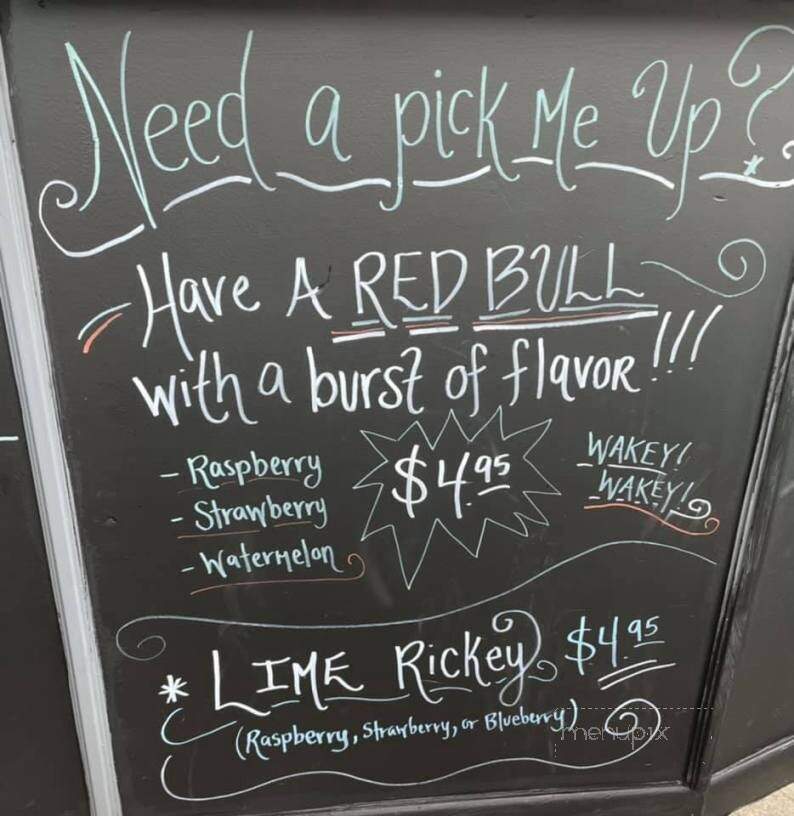 Need a pick Me Up?
Have A RED BULL
with a burst of flavor!!!
- Raspberry
- Strawberry
- Watermelon
$4.95
WAKEY!
WAKEY!
* LIME Rickey $4.95
(Raspberry, Strawberry, or Blueberry)
menupix